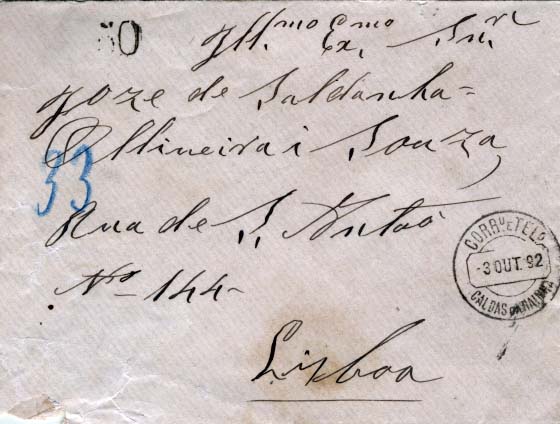 50
Ill.mo Ex.mo Snr.
Joze de Saldanha
Olliveira i Souza
33
Rua de S. Antão
No 144
CORR. E TELEG.
-3 OUT. 92
CALDAS DA RAINHA
Lisboa